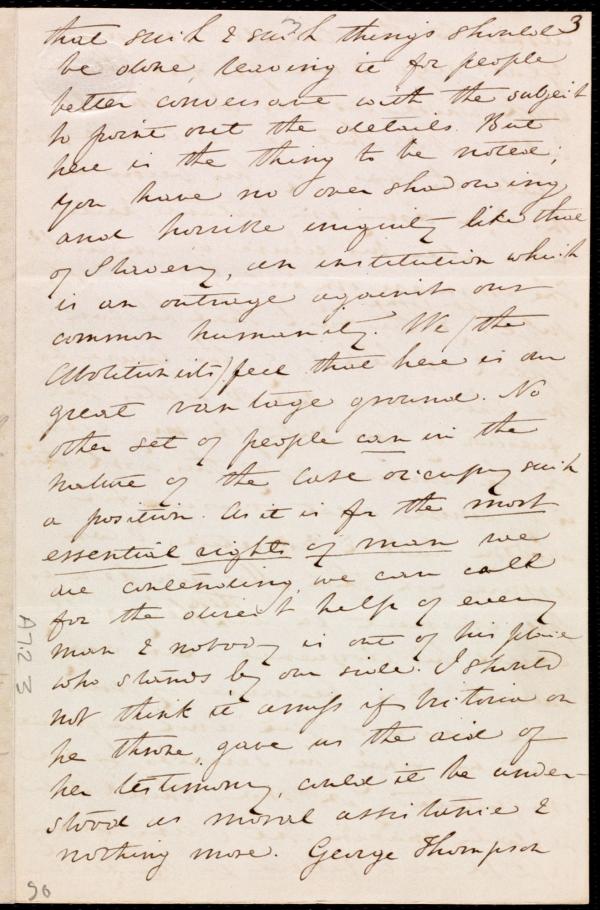 3
that such & such things should
be done, leaving it for people
better conversant with the subject
to point out the details. But
here is the thing to be noted;
you have no over shadowing
and horrible iniquity like that
of Slavery, an institution which
is an outrage against our
common humanity. We (the
Abolitionists) feel that here is our
great vantage ground. No
other set of people can in the
nature of the case occupy such
a position. As it is for the most
essential rights of man we
are contending, we can call
for the direct help of every
man & nobody is out of his place
who stands by our side. I should
not think it amiss if Victoria on
her throne, gave us the aid of
her testimony, could it be under-
stood as moral assistance &
nothing more. George Thompson
A 7.2 3
96